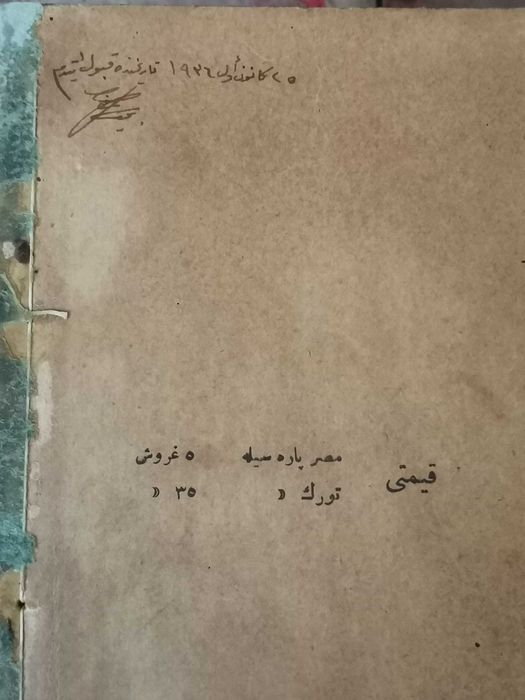 ٢٥ كانون أول ١٩٣٦ تاريخنده قبول ايتدم
قيمتى
مصر پاره سيله ٥ غروش
تورك » ٣٥ »